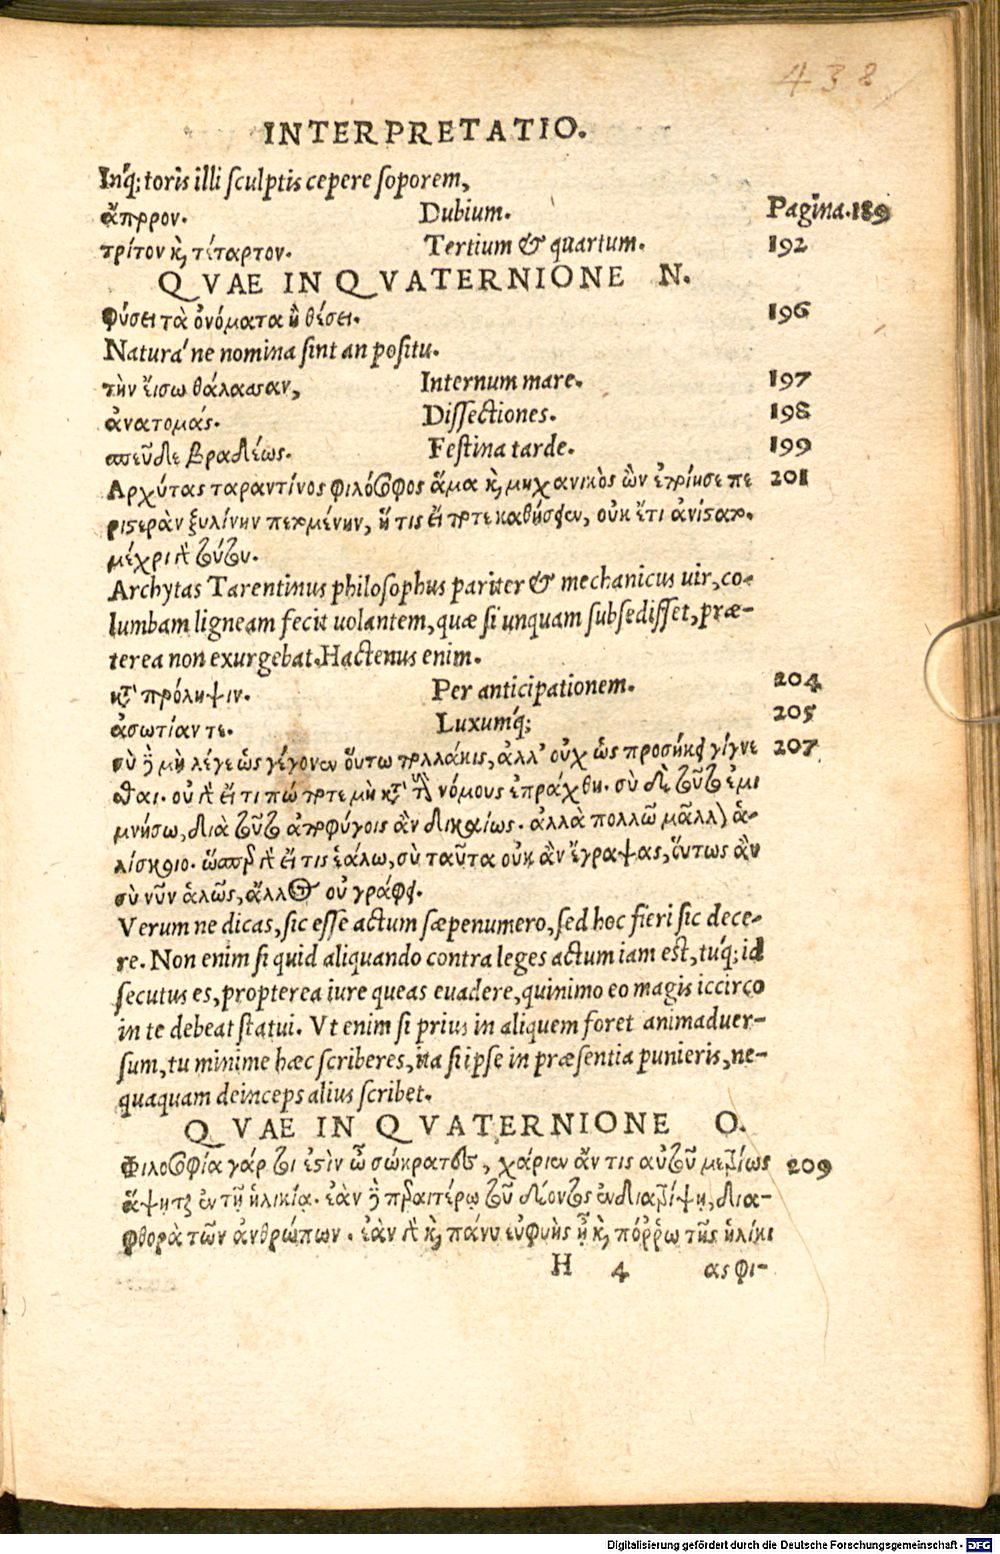 438
INTERPRETATIO.
Inq́; toris illi sculptis cepere soporem,
ἄπορον. Dubium. Pagina.189
τρίτον κ̀, τέταρτον. Tertium & quartum. 192
QVAE IN QVATERNIONE N.
φύσει τὰ ὀνόματα ἢ θέσει. 196
Natura'ne nomina sint an positu.
τὴν ἔισω θάλασσαν, Internum mare. 197
ἀνατομάς. Dissectiones. 198
σπεῦδε βραδέως. Festina tarde. 199
Αρχύτας ταραντίνος φιλόσοφος ἅμα κ̀, μηχανικὸς ὢν ἐποίησε πε 201
ριστερὰν ξυλίνην πετομένην, ἥ τις εἴ ποτε καθήσειεν, οὐκ ἔτι ἀνίστατο.
μέχρι δὲ τούτου.
Archytas Tarentinus philosophus pariter & mechanicus uir, co-
lumbam ligneam fecit uolantem, quæ si unquam subsedisset, præ-
terea non exurgebat. Hactenus enim.
κτ̀ πρόληψιν. Per anticipationem. 204
ἀσωτίαν τε. Luxumq́; 205
σὺ δὲ μὴ λέγε ὡς γέγονεν ὅυτω πολλάκις, ἀλλ' οὐχ ὡς προσήκει γίγνε 207
σθαι. οὐ δὲ εἴ τι πώ ποτε μὴ κτ̀ τοὺς νόμους ἐπράχθη. σὺ δὲ τοῦτο ἐμι
μνήσω, διὰ τοῦτο ἀποφύγοις ἂν δικαίως. ἀλλὰ πολλῶ μᾶλλον ἁ-
λίσκοιο. ὥσπερ δὲ εἴ τις ἑάλω, σὺ ταῦτα οὐκ ἂν ἔγραψας, ὅυτως ἂν
σὺ νῦν ἁλῶς, ἄλλος οὐ γράφει.
Verum ne dicas, sic esse actum sæpenumero, sed hoc fieri sic dece-
re. Non enim si quid aliquando contra leges actum iam est, tuq́; id
secutus es, propterea iure queas euadere, quinimo eo magis iccirco
in te debeat statui. Vt enim si prius in aliquem foret animaduer-
sum, tu minime hæc scriberes, ita si ipse in præsentia punieris, ne-
quaquam deinceps alius scribet.
QVAE IN QVATERNIONE O.
Φιλοσοφία γάρ τοι ἐστὶν ὦ σώκρατες, χάριεν ἄν τις αὐτοῦ μετρίως 209
ἅψηται ἐν τῇ ἡλικίᾳ. ἐὰν δὲ περαιτέρω τοῦ δέοντος ἐνδιατρίψῃ, δια-
φθορὰ τῶν ἀνθρώπων. ἐὰν δὲ κ̀, πάνυ εὐφυὴς ᾖ κ̀, πόῤῥω τῆς ἡλίκι
H 4 ας φι-
Digitalisierung gefördert durch die Deutsche Forschungsgemeinschaft - DFG